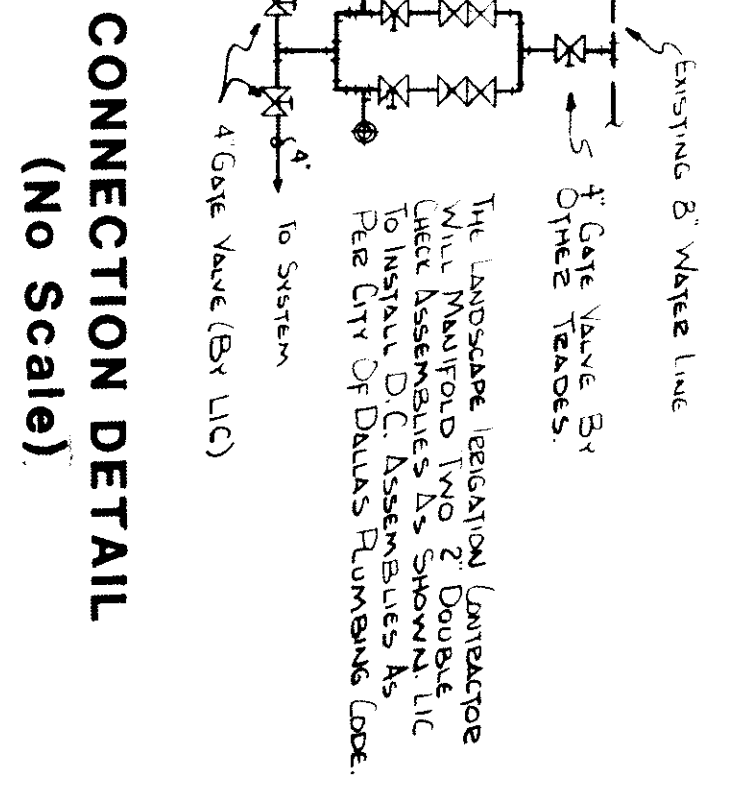 EXISTING 8" WATER LINE
4" GATE VALVE BY
OTHER TRADES.
THE LANDSCAPE IRRIGATION CONTRACTOR
WILL MANIFOLD TWO 2" DOUBLE
CHECK ASSEMBLIES AS SHOWN. LIC
TO INSTALL D.C. ASSEMBLIES AS
PER CITY OF DALLAS PLUMBING CODE.
4"
TO SYSTEM
4" GATE VALVE (BY LIC)
CONNECTION DETAIL
(No Scale)